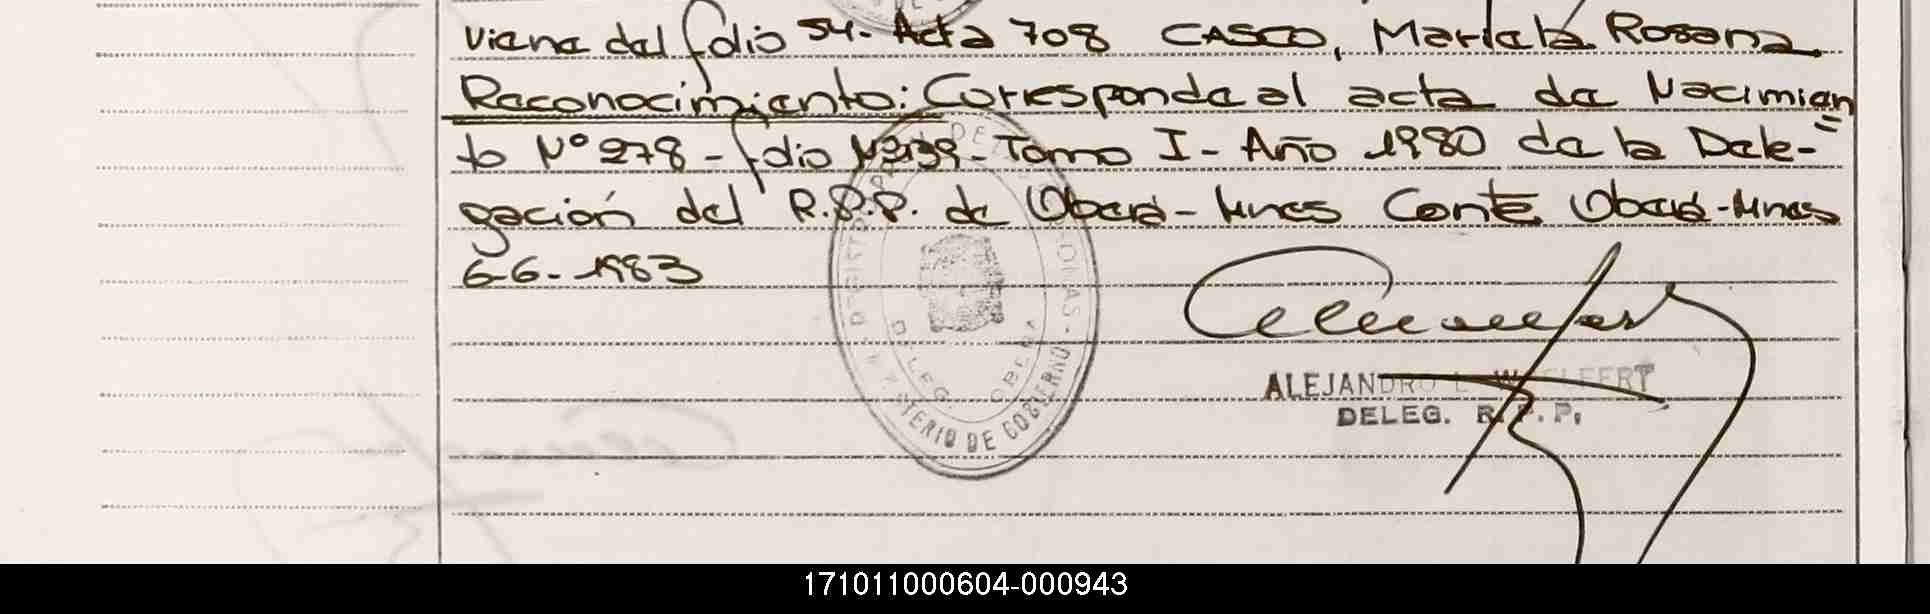 Viene del folio 54- Acta 708 CASCO, Mariela Rosana
Reconocimiento: Corresponde al acta de Nacimien
to Nº 278 - folio Nº 139 - Tomo I - Año 1980 de la Dele-
gación del R.P.P. de Oberá - Mnes Conte Oberá - Mnes
6-6-1983
MINISTERIO DE GOBIERNO
DELEG. OBERA
ALEJANDRO L. WELFERT
DELEG. R.P.P.
171011000604-000943